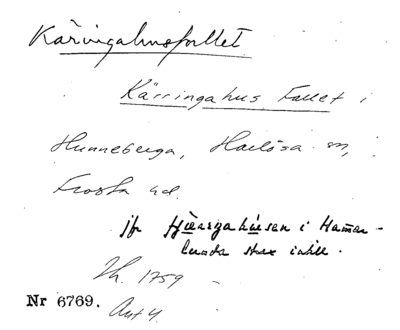 Käringahusfallet
Kärringahus Fallet i
Hunneberga, Harlösa sn,
Frosta hd.
jfr Hjäragahusen i Hammar-
lunda strax intill.
Th. 1759
Nr 6769.
Ant 4